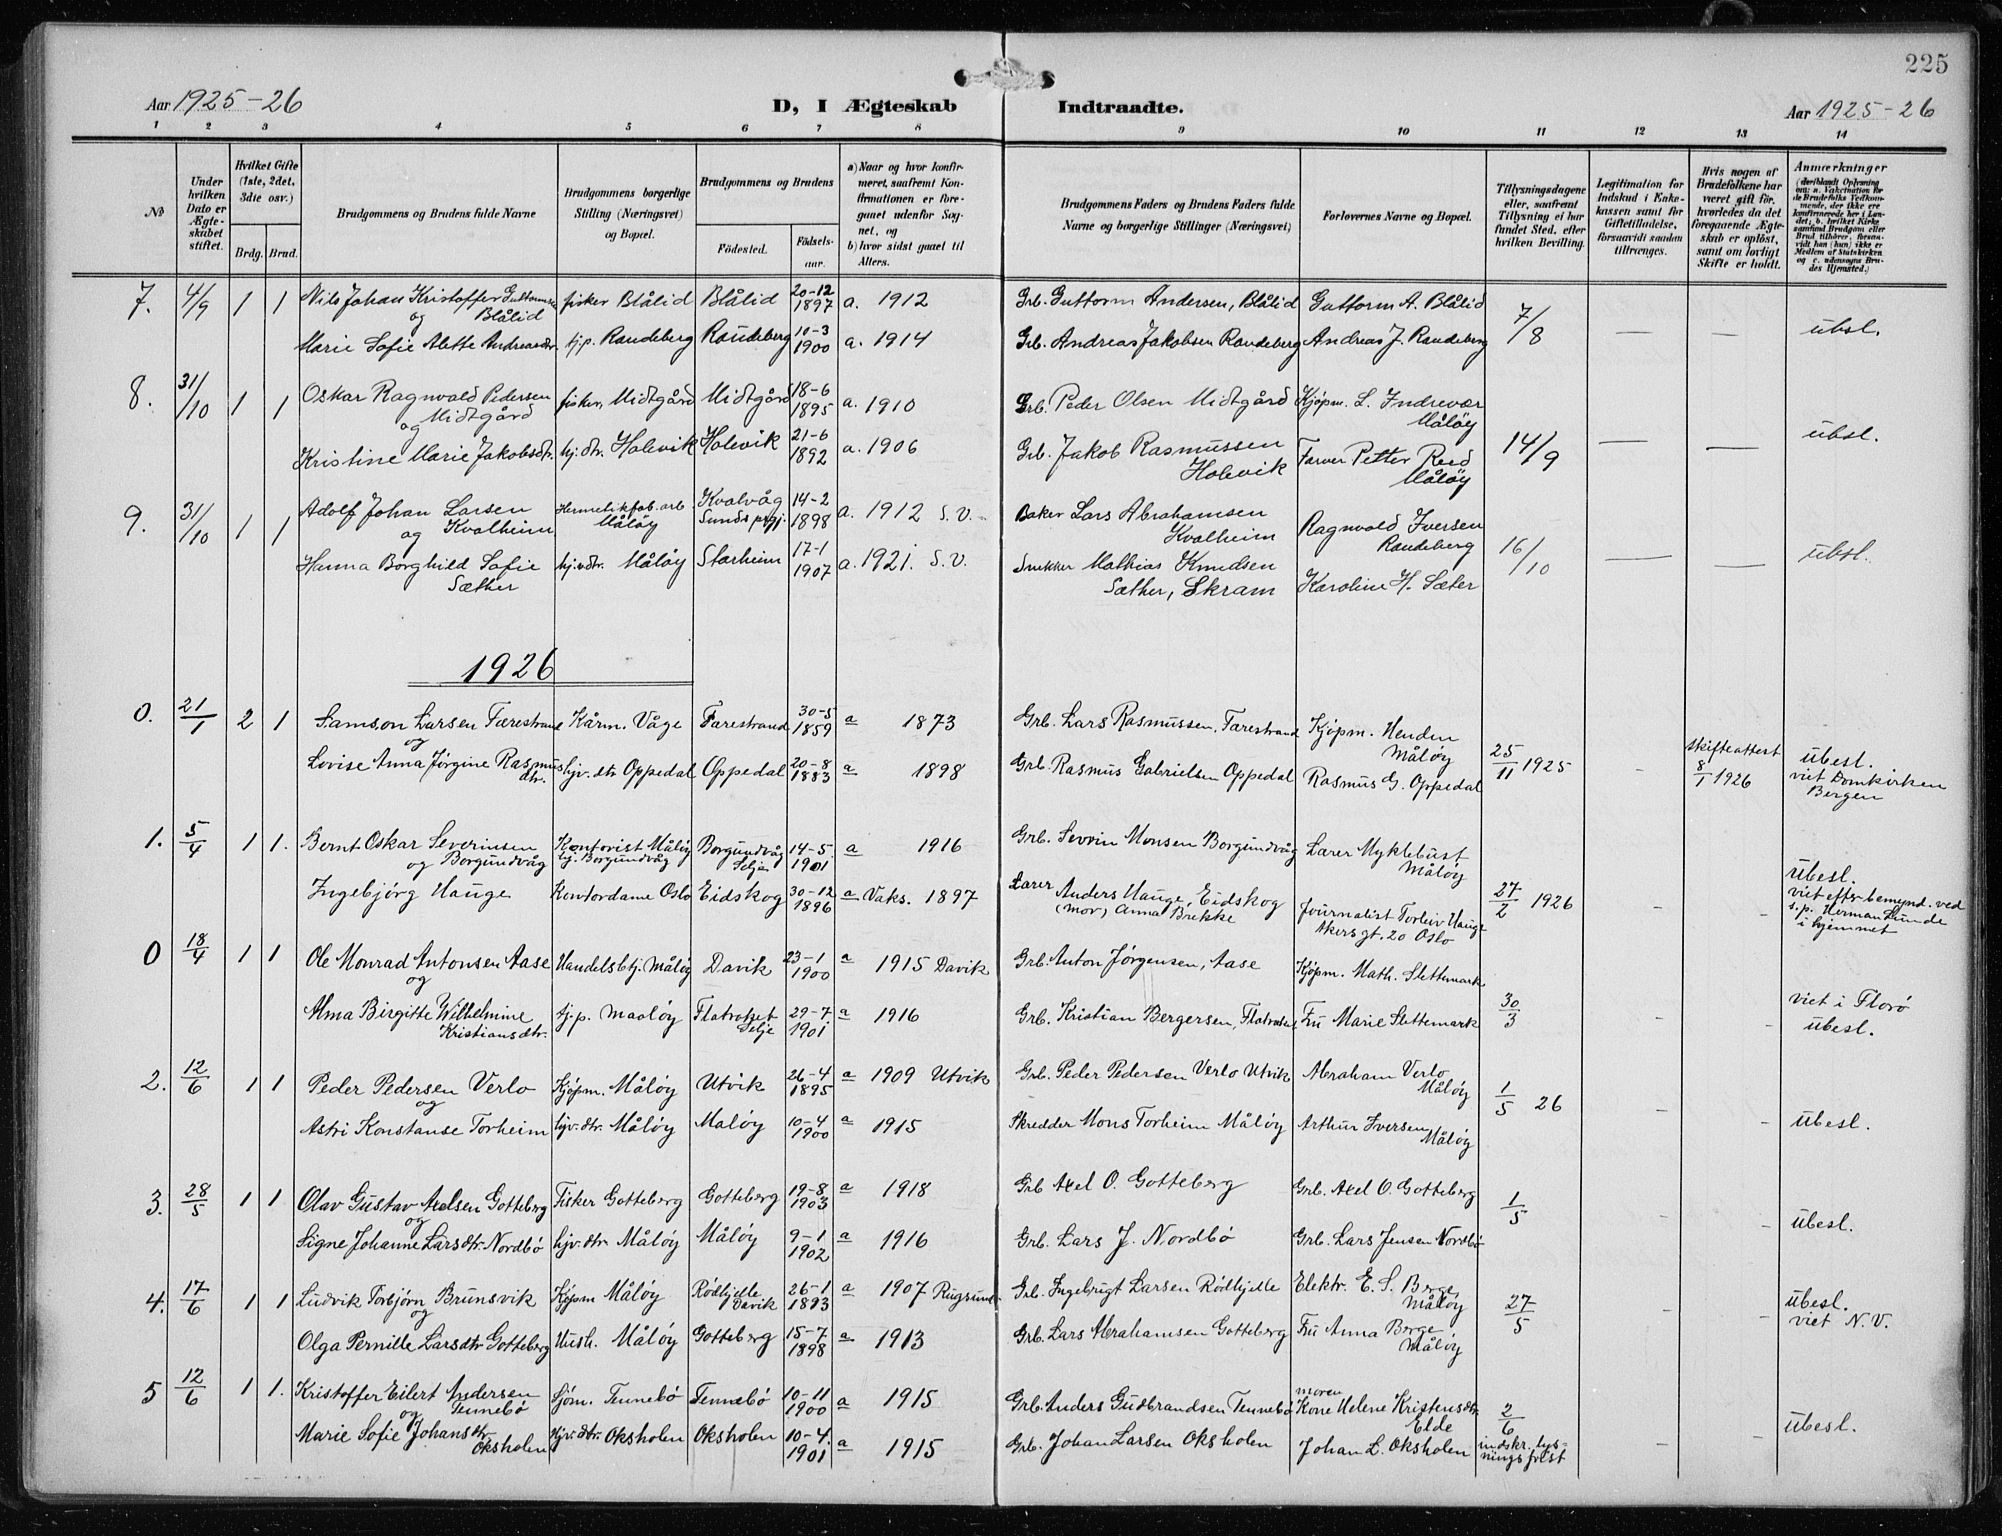 225
Aar 1925-26
D, I Ægteskab Indtraadte.
Aar 1925-26
1 2 3 4 5 6 7 8 9 10 11 12 13 14
No
Under hvilken Dato er Ægteskabet stiftet.
Hvilket Gifte (1ste, 2det, 3die osv.)
Brdg. Brud.
Brudgommens og Brudens fulde Navne
Brudgommens borgerlige Stilling (Næringsvei) og Bopæl.
Brudgommens og Brudens
Fødested. Fødselsaar.
a) Naar og hvor konfirmeret, saafremt Konfirmationen er foregaaet udenfor Sognet, og
b) hvor sidst gaaet til Alters.
Brudgommens Faders og Brudens Faders fulde Navne og borgerlige Stillinger (Næringsvei)
Forlovernes Navne og Bopæl.
Tillysningsdagene eller, saafremt Tillysning ei har fundet Sted, efter hvilken Bevilling.
Legitimation for Indskud i Enkekassen samt for Giftetilladelse, forsaavidt saadan tiltrænges.
Hvis nogen af Brudefolkene har været gift før, hvorledes da det foregaaende Ægteskab er opløst, samt om lovligt Skifte er holdt.
Anmærkninger
7. 4/9 1 1 Nils Johan Kristoffer Guttormsen Blålid fisker Blålid Blålid 20-12 1897 a. 1912 Grb. Guttorm Andersen, Blålid Guttorm A. Blålid 7/8
og
Marie Sofie Alette Andreasdtr. hj.p. Raudeberg Raudeberg 10-3 1900 a. 1914 Grb. Andreas Jakobsen Raudeberg Andreas J. Raudeberg — — ubsl.
8. 31/10 1 1 Oskar Ragnvald Pedersen Midtgård fisker, Midtgård Midtgård 18-6 1895 a. 1910 Grb. Peder Olsen Midtgård Kjøpm. L. Indrevær Måløy
og
Kristine Marie Jakobsdtr. hj.dtr. Holevik Holevik 21-6 1892 a. 1906 Grb. Jakob Rasmussen Holevik Farver Petter Reed Måløy 14/9 — — ubsl.
9. 31/10 1 1 Adolf Johan Larsen Kvalheim Hermetikfab.arb. Måløy Kvalvåg Sunds prgj. 14-2 1898 a. 1912 S.V. Baker Lars Abrahamsen Kvalheim Ragnvald Iversen Raudeberg
og
Hanna Borghild Sofie Sæther hj.v.dtr. Måløy Starheim 17-1 1907 a. 1921. S.V. Snekker Mathias Knudsen Sæther, Skram Karoline H. Sæter 16/10 — — ubsl.
1926
0. 21/1 2 1 Samson Larsen Færestrand Kårm. Våge Farestrand 30-5 1859 a 1873 Grb. Lars Rasmussen, Farestrand Kjøpm. Henden Måløy
og
Lovise Anna Jørgine Rasmusdtr. hjv. dtr Oppedal Oppedal 20-8 1883 a 1898 Grb. Rasmus Gabrielsen Oppedal Rasmus G. Oppedal 25/11 1925 - skifteattest 8/1 1926 übesl. viet Domkirken Bergen
1. 5/4 1 1. Bernt Oskar Severinsen Borgundvåg Kontorist Måløy hj. Borgundvåg Borgundvåg Selje 14-5 1901 a 1916 Grb. Sevrin Monsen Borgundvåg Lærer Myklebust Måløy
og
Ingebjørg Hauge Kontordame Oslo Eidskog 30-12 1896 a Vaks. 1897 Lærer Anders Hauge, Eidskog (mor) Anna Brekke Journalist Torleiv Hauge Akersgt. 20 Oslo 27/2 1926 - - übesl. viet efter bemynd. ved s.p. Herman Lunde i hjemmet
0 18/4 1 1 Ole Monrad Antonsen Aase Handelsbtj. Måløy Davik 23-1 1900 a 1915 Davik Grb. Anton Jørgensen, Aase Kjøpm. Math. Slettemark
og
Alma Birgitte Wilhelmine Kristiansdtr. tj.p. Maaløy Flatraket Selje 29-7 1901 a 1916 Grb. Kristian Bergersen, Flatraket Fru Marie Slettemark 30/3 - - viet i Florø übesl.
2. 12/6 1 1 Peder Pedersen Verlo Kjøpm. Måløy Utvik 26-4 1895 a 1909 Utvik Grb. Peder Pedersen Verlo Utvik Abraham Verlo Måløy
og
Astri Konstanse Torheim hjv.dtr. Måløy Maløy 10-4 1900 a 1915 Skredder Mons Torheim Måløy Arthur Iversen Måløy 1/5 26 - - übesl.
3. 28/5 1 1 Olav Gustav Axelsen Gotteberg Fisker Gotteberg Gotteberg 19-8 1903 a 1918 Grb Axel O. Gotteberg Grb. Axel O. Gotteberg 1/5
og
Signe Johanne Larsdtr. Nordbø hjv. dtr Måløy Måløy 9-1 1902 a 1916 Grb. Lars J. Nordbø Grb. Lars Jensen Nordbø - - übesl.
4. 17/6 1 1 Ludvik Torbjørn Brunsvik Kjøpm Måløy Rødhjelle Davik 26-1 1893 a 1907 Rugsund Grb. Ingebrigt Larsen Rødhjelle Elektr. E. S. Berge, Måløy 27/5 - - übesl. viet N.V.
og
Olga Pernille Larsdtr Gotteberg Hush. Måløy Gotteberg 15-7 1898 a 1913 Grb. Lars Abrahamsen Gotteberg Fru Anna Berge Måløy
5 12/6 1 1. Kristoffer Eilert Andersen Tennebø Sjøm. Tennebø Tennebø 10-11 1900 a 1915 Grb. Anders Gudbrandsen Tennebø moren Kone Helene Kristensdtr Elde 2/6
og
Marie Sofie Johansdtr. Oksholen hjv. dtr. Oksholen Oksholen 10-4 1901 a 1915 Grb. Johan Larsen Oksholen Johan L. Oksholen indskr. lysningsfrist - - übesl.